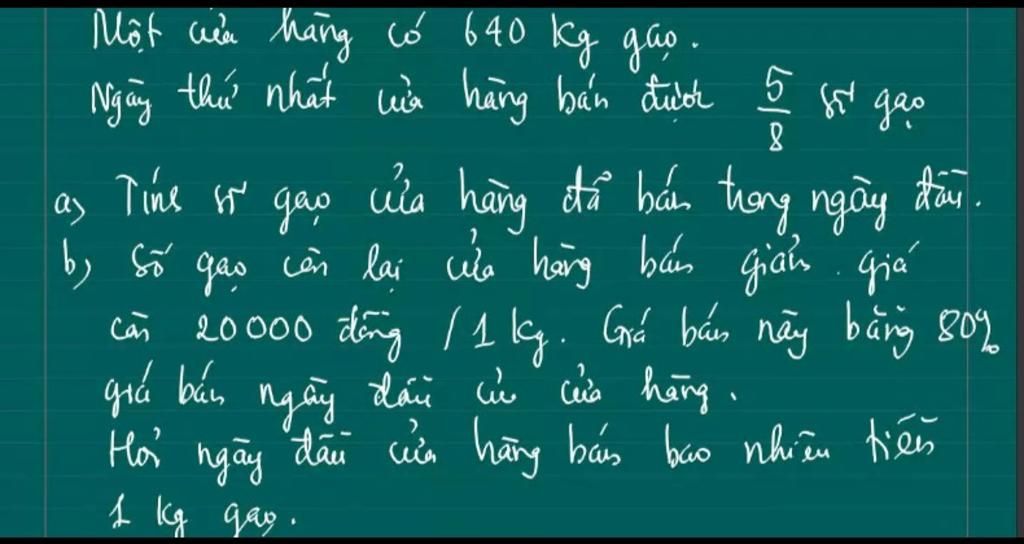 Một cửa hàng có 640 kg gạo.
Ngày thứ nhất cửa hàng bán được 5/8 số gạo
a) Tính số gạo cửa hàng đã bán trong ngày đầu.
b) Số gạo còn lại cửa hàng bán giảm giá
còn 20000 đồng /1 kg. Giá bán này bằng 80%
giá bán ngày đầu của cửa hàng.
Hỏi ngày đầu cửa hàng bán bao nhiêu tiền
1 kg gạo.